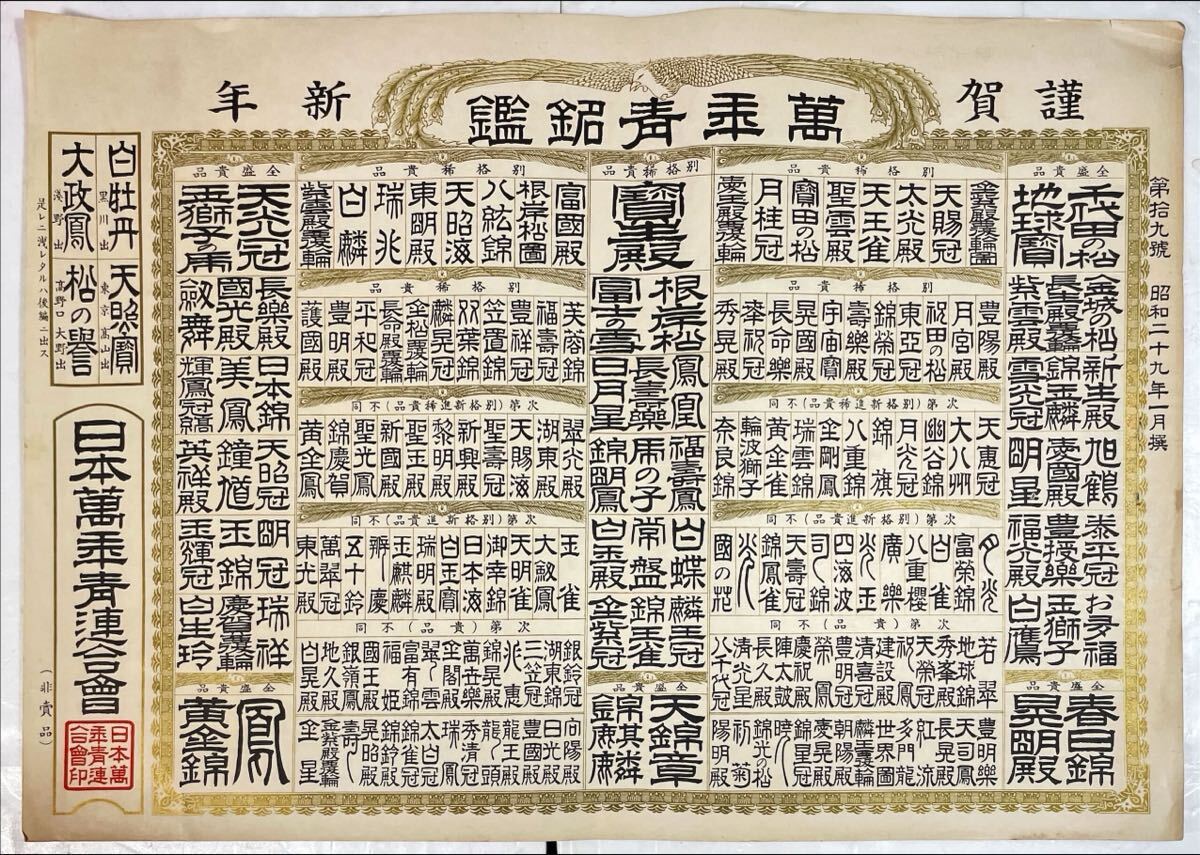 謹賀
新年
萬年青銘鑑
第拾九號 昭和二十九年一月撰
全盛貴品
千代田の松
地球寶
金城の松
長生殿覆輪
紫雲殿
新生殿
錦玉麟
雲光冠
旭鶴
愛國殿
明星
泰平冠
豊援樂
福光殿
おた福
玉獅子
白鷹
全盛貴品
春日錦
晃明殿
別格稀貴品
天賜冠
太光殿
天王雀
聖雲殿
寶田の松
月桂冠
別格稀貴品
豊陽殿
月宮殿
祝田の松
東亞冠
錦榮冠
壽樂殿
宇宙寶
長命樂
泰祝冠
秀晃殿
次第不同(別格新進稀貴品)
天惠冠
大八州
幽谷錦
月光冠
錦旗
八重錦
金剛鳳
瑞雲錦
黄金雀
輪波獅子
奈良錦
次第不同(別格新進貴品)
月光
富榮錦
白雀
八重櫻
廣樂
光玉
四海波
司錦
天壽冠
錦鳳雀
國の花
次第不同(貴品)
若翠
地球錦
秀峯殿
天榮冠
祝鳳
建設殿
清喜冠
豊明冠
榮鳳
慶祝殿
陣太鼓
長久殿
清光星
八千代冠
豊明樂
天司鳳
長晃殿
紅流
多門龍
世界圖
麟玉覆輪
朝陽殿
愛晃冠
曉星
錦光の松
初菊
陽明殿
別格稀貴品
寶生殿
根岸松
富士の雪
鳳凰
長壽樂
日月星
福壽鳳
虎の子
錦明鳳
白蝶
常盤
白玉殿
麟玉冠
錦玉雀
金紫冠
全盛貴品
天錦章
錦麒麟
別格稀貴品
富國殿
根岸松圖
八紘錦
天昭海
東明殿
瑞兆
白麟
別格稀貴品
芙蓉錦
福壽冠
豊祥冠
笠置錦
双葉錦
麟晃冠
金松覆輪
長命殿覆輪
平和冠
豊明殿
護國殿
次第不同(別格新進稀貴品)
翠光殿
湖東殿
天賜海
聖壽冠
新興殿
黎明殿
新國殿
聖光鳳
錦慶賀
黄金鳳
次第不同(別格新進貴品)
玉雀
大劔鳳
天明雀
御幸錦
日本海
白玉寶
瑞明殿
玉麒麟
辨慶
五十鈴
萬翠冠
東光殿
次第不同(貴品)
銀鈴冠
湖東錦
三笠冠
兆惠
錦晃星
萬世樂
金閣殿
翠の雲
富有錦
福姫
國王殿
銀嶺鳳
地久殿
白晃殿
向陽殿
日光殿
豊國殿
龍王殿
龍頭
秀清冠
瑞鳳
太白冠
錦雀冠
錦鈴殿
晃昭殿
壽
金星
全盛貴品
天光冠
玉獅子の虎
長樂殿
國光殿
劔舞
日本錦
美鳳
輝鳳冠縞
天昭冠
鐘馗
英祥殿
明冠
玉錦
玉輝冠
瑞祥
慶賀覆輪
白生玲
全盛貴品
鳳
黄金錦
白牡丹
黒川出
大政鳳
淺野出
天照寶
東京高山出
松の譽
高野口大野出
足レニ洩レタルハ後編ニ出ス
日本萬年青連合會
日本萬年青連合會印
(非賣品)